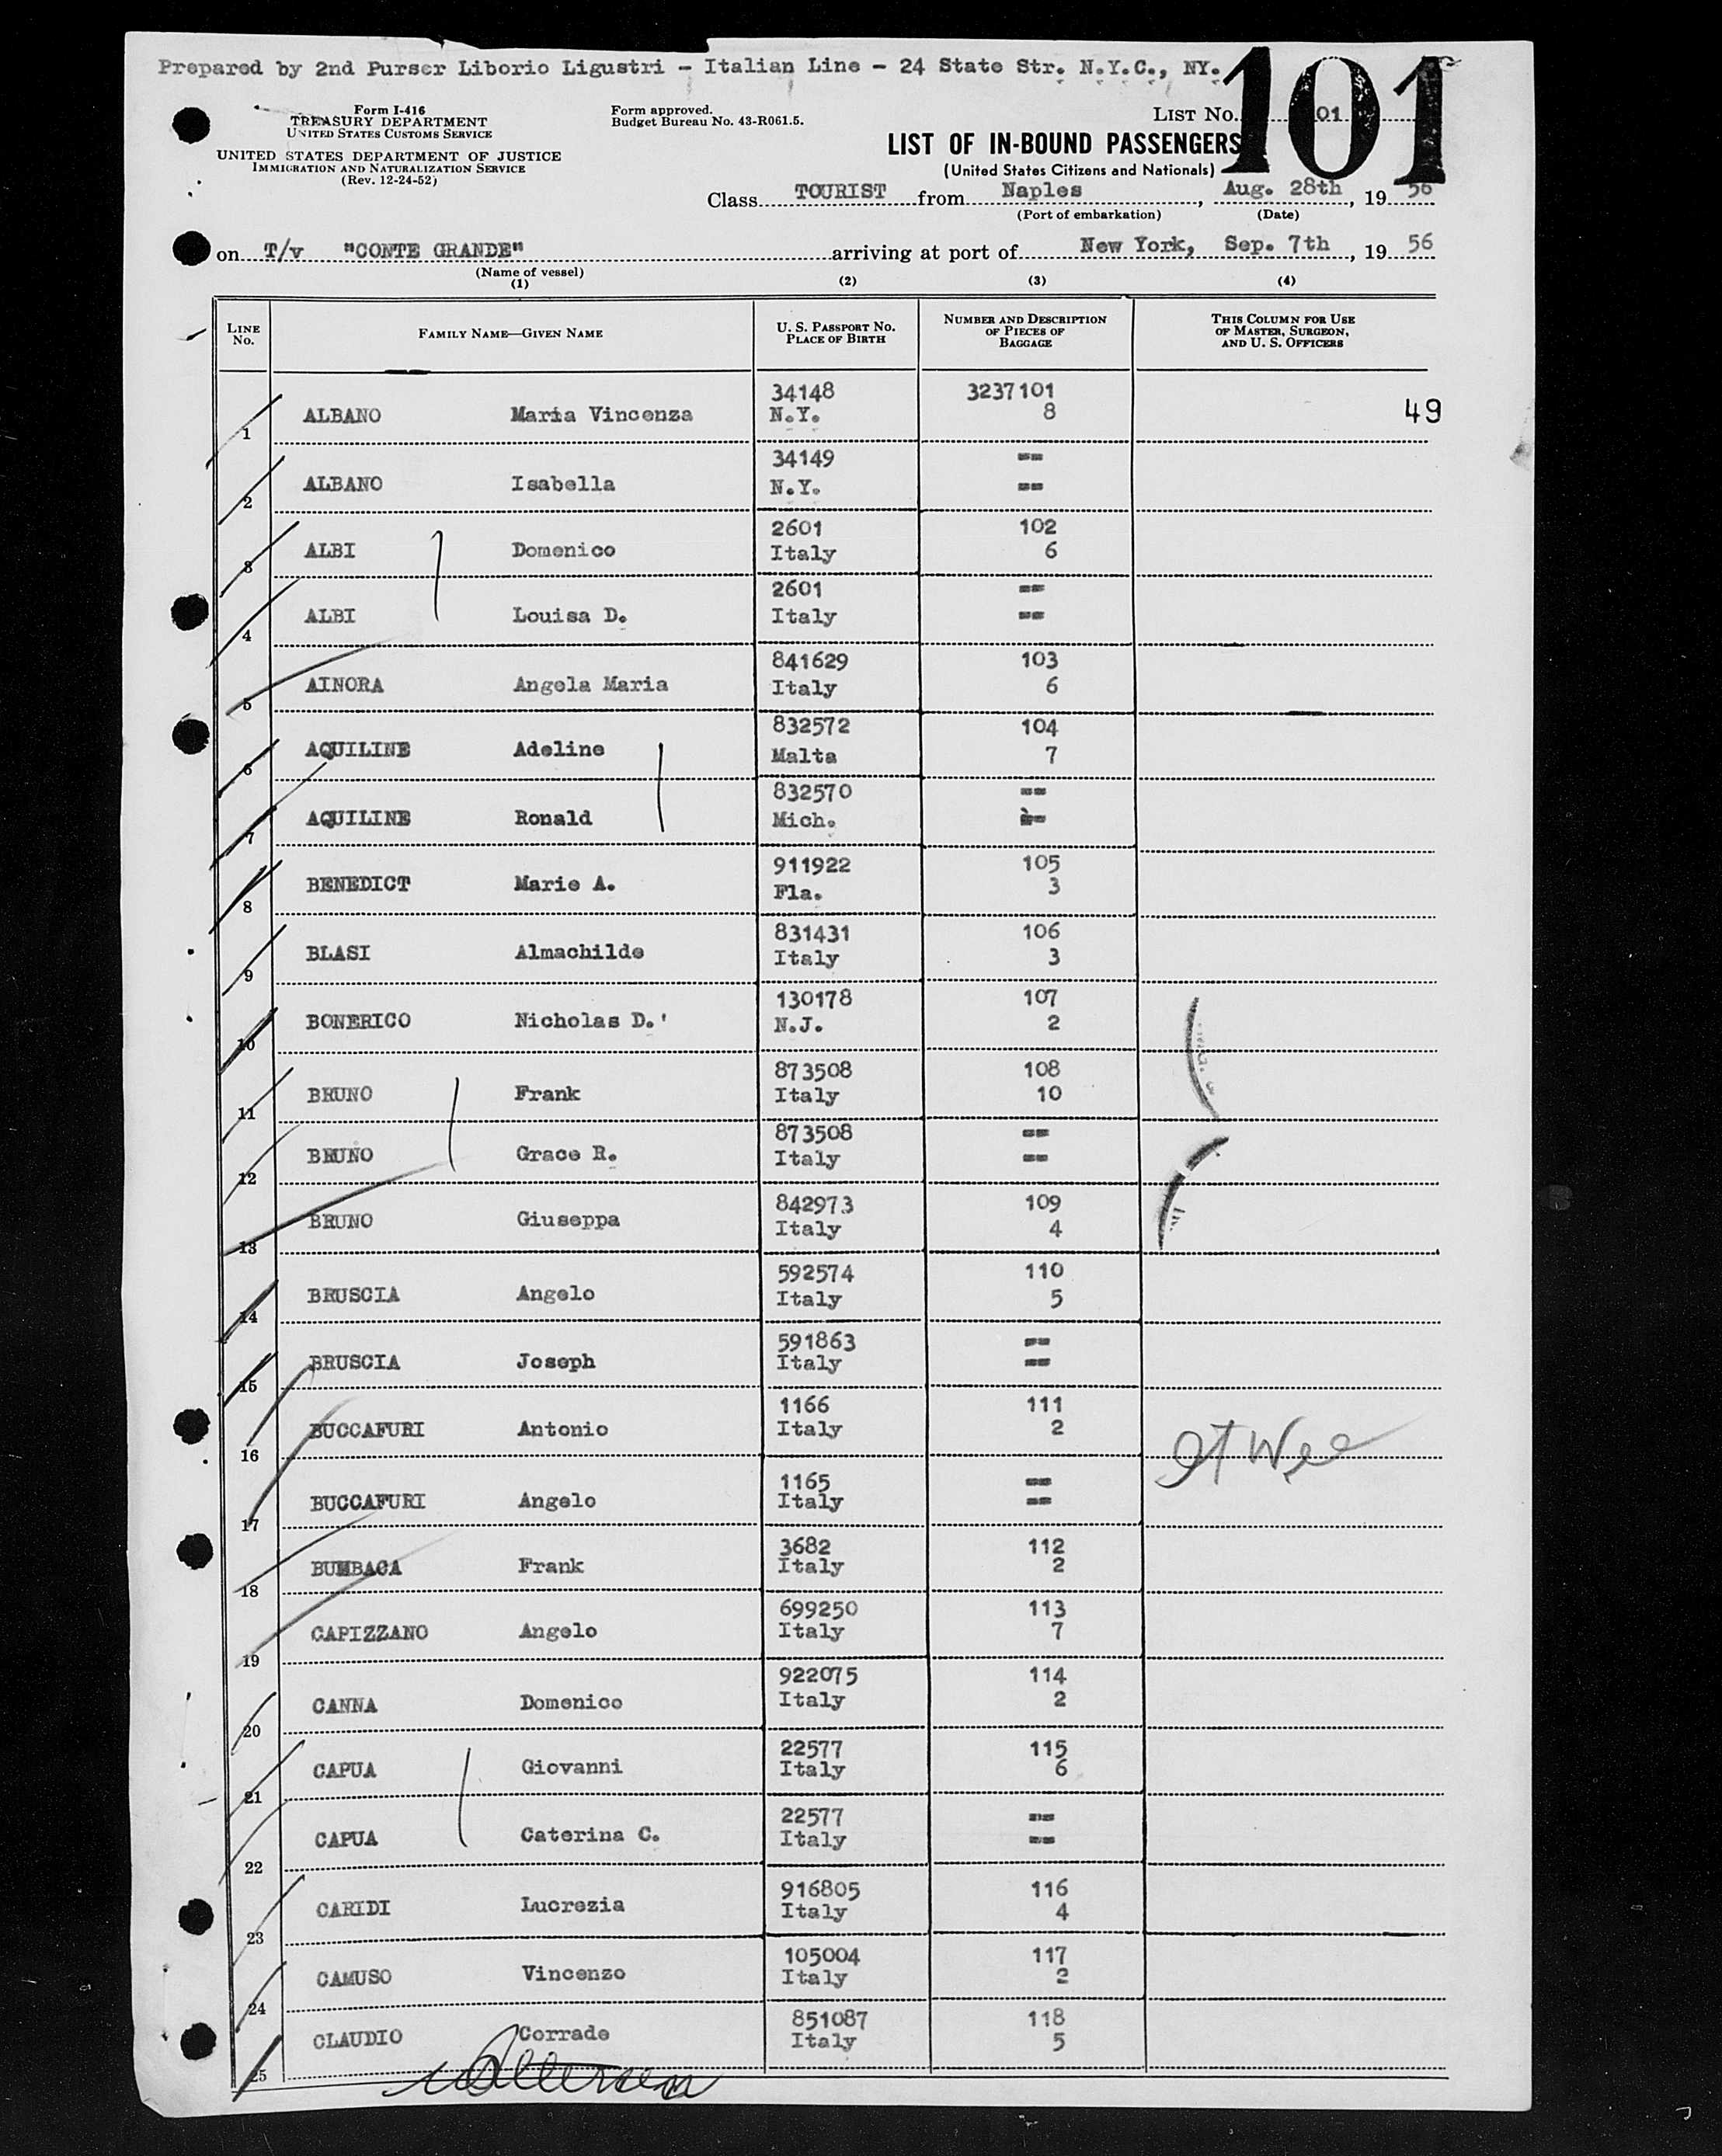 Prepared by 2nd Purser Liborio Ligustri - Italian Line - 24 State Str. N.Y.C., NY.
101
Form I-416
TREASURY DEPARTMENT
UNITED STATES CUSTOMS SERVICE
UNITED STATES DEPARTMENT OF JUSTICE
IMMIGRATION AND NATURALIZATION SERVICE
(Rev. 12-24-52)
Form approved.
Budget Bureau No. 43-R061.5.
LIST No. 01
LIST OF IN-BOUND PASSENGERS
(United States Citizens and Nationals)
Class TOURIST from Naples, Aug. 28th, 19 56
(Port of embarkation) (Date)
on T/v "CONTE GRANDE" arriving at port of New York, Sep. 7th, 19 56
(Name of vessel)
(1) (2) (3) (4)
LINE No. FAMILY NAME—GIVEN NAME U. S. PASSPORT NO. PLACE OF BIRTH NUMBER AND DESCRIPTION OF PIECES OF BAGGAGE THIS COLUMN FOR USE OF MASTER, SURGEON, AND U. S. OFFICERS
34148 3237101
1 ALBANO Maria Vincenza N.Y. 8 49
34149 --
2 ALBANO Isabella N.Y. --
2601 102
3 ALBI Domenico Italy 6
2601 --
4 ALBI Louisa D. Italy --
841629 103
5 AINORA Angela Maria Italy 6
832572 104
6 AQUILINE Adeline Malta 7
832570 --
7 AQUILINE Ronald Mich. --
911922 105
8 BENEDICT Marie A. Fla. 3
831431 106
9 BLASI Almachilde Italy 3
130178 107
10 BONERICO Nicholas D.' N.J. 2
873508 108
11 BRUNO Frank Italy 10
873508 --
12 BRUNO Grace R. Italy --
842973 109
13 BRUNO Giuseppa Italy 4
592574 110
14 BRUSCIA Angelo Italy 5
591863 --
15 BRUSCIA Joseph Italy --
1166 111
16 BUCCAFURI Antonio Italy 2
1165 --
17 BUCCAFURI Angelo Italy --
3682 112
18 BUMBACA Frank Italy 2
699250 113
19 CAPIZZANO Angelo Italy 7
922075 114
20 CANNA Domenico Italy 2
22577 115
21 CAPUA Giovanni Italy 6
22577 --
22 CAPUA Caterina C. Italy --
916805 116
23 CARIDI Lucrezia Italy 4
105004 117
24 CAMUSO Vincenzo Italy 2
851087 118
25 CLAUDIO Corrado Italy 5